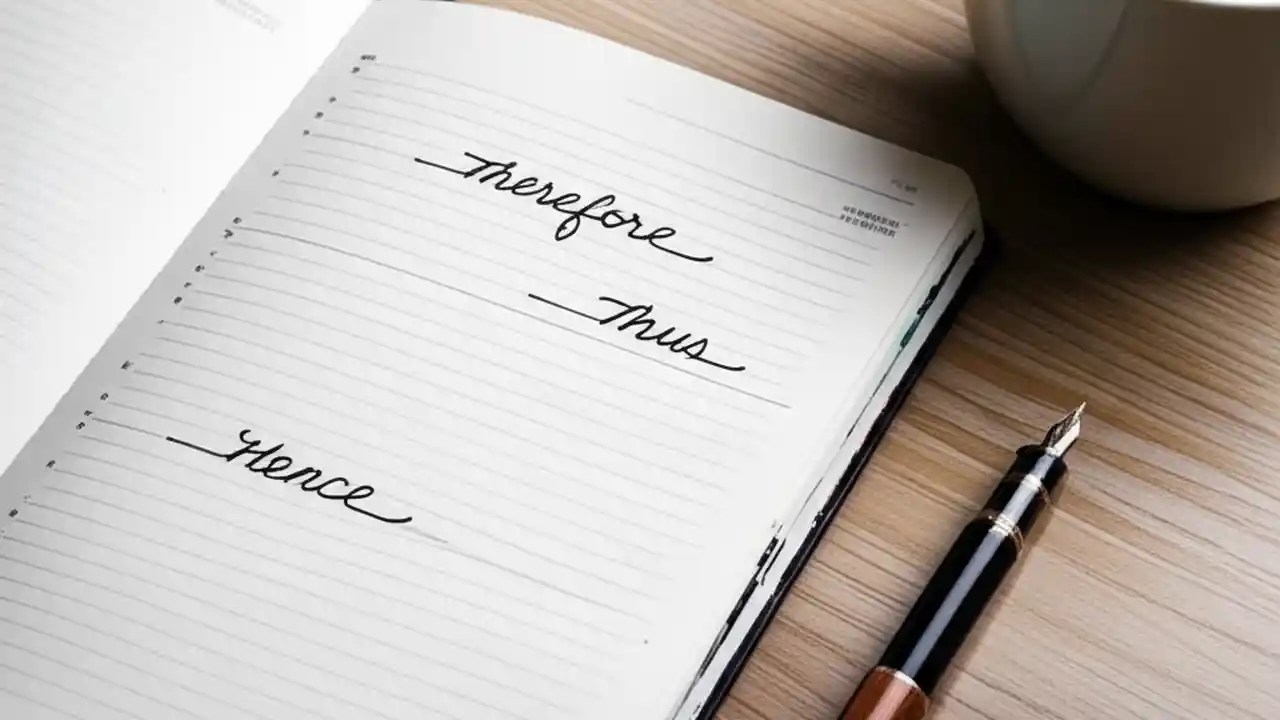 Therefore
Thus
Hence